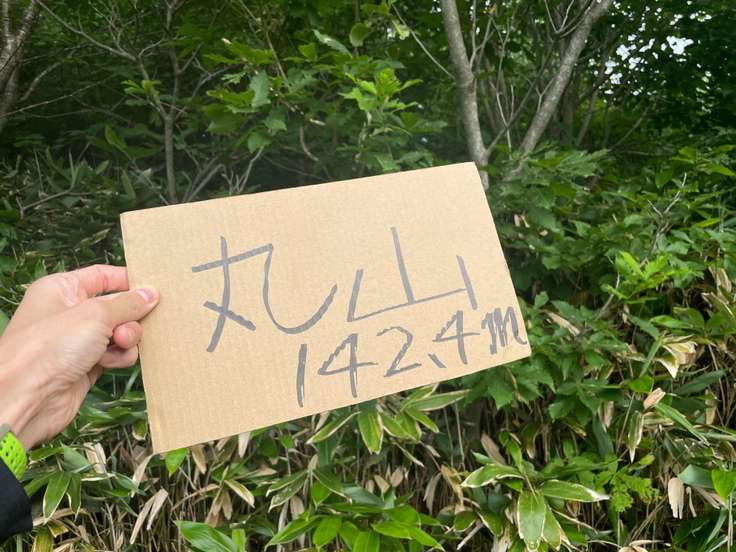 丸山
142.4m